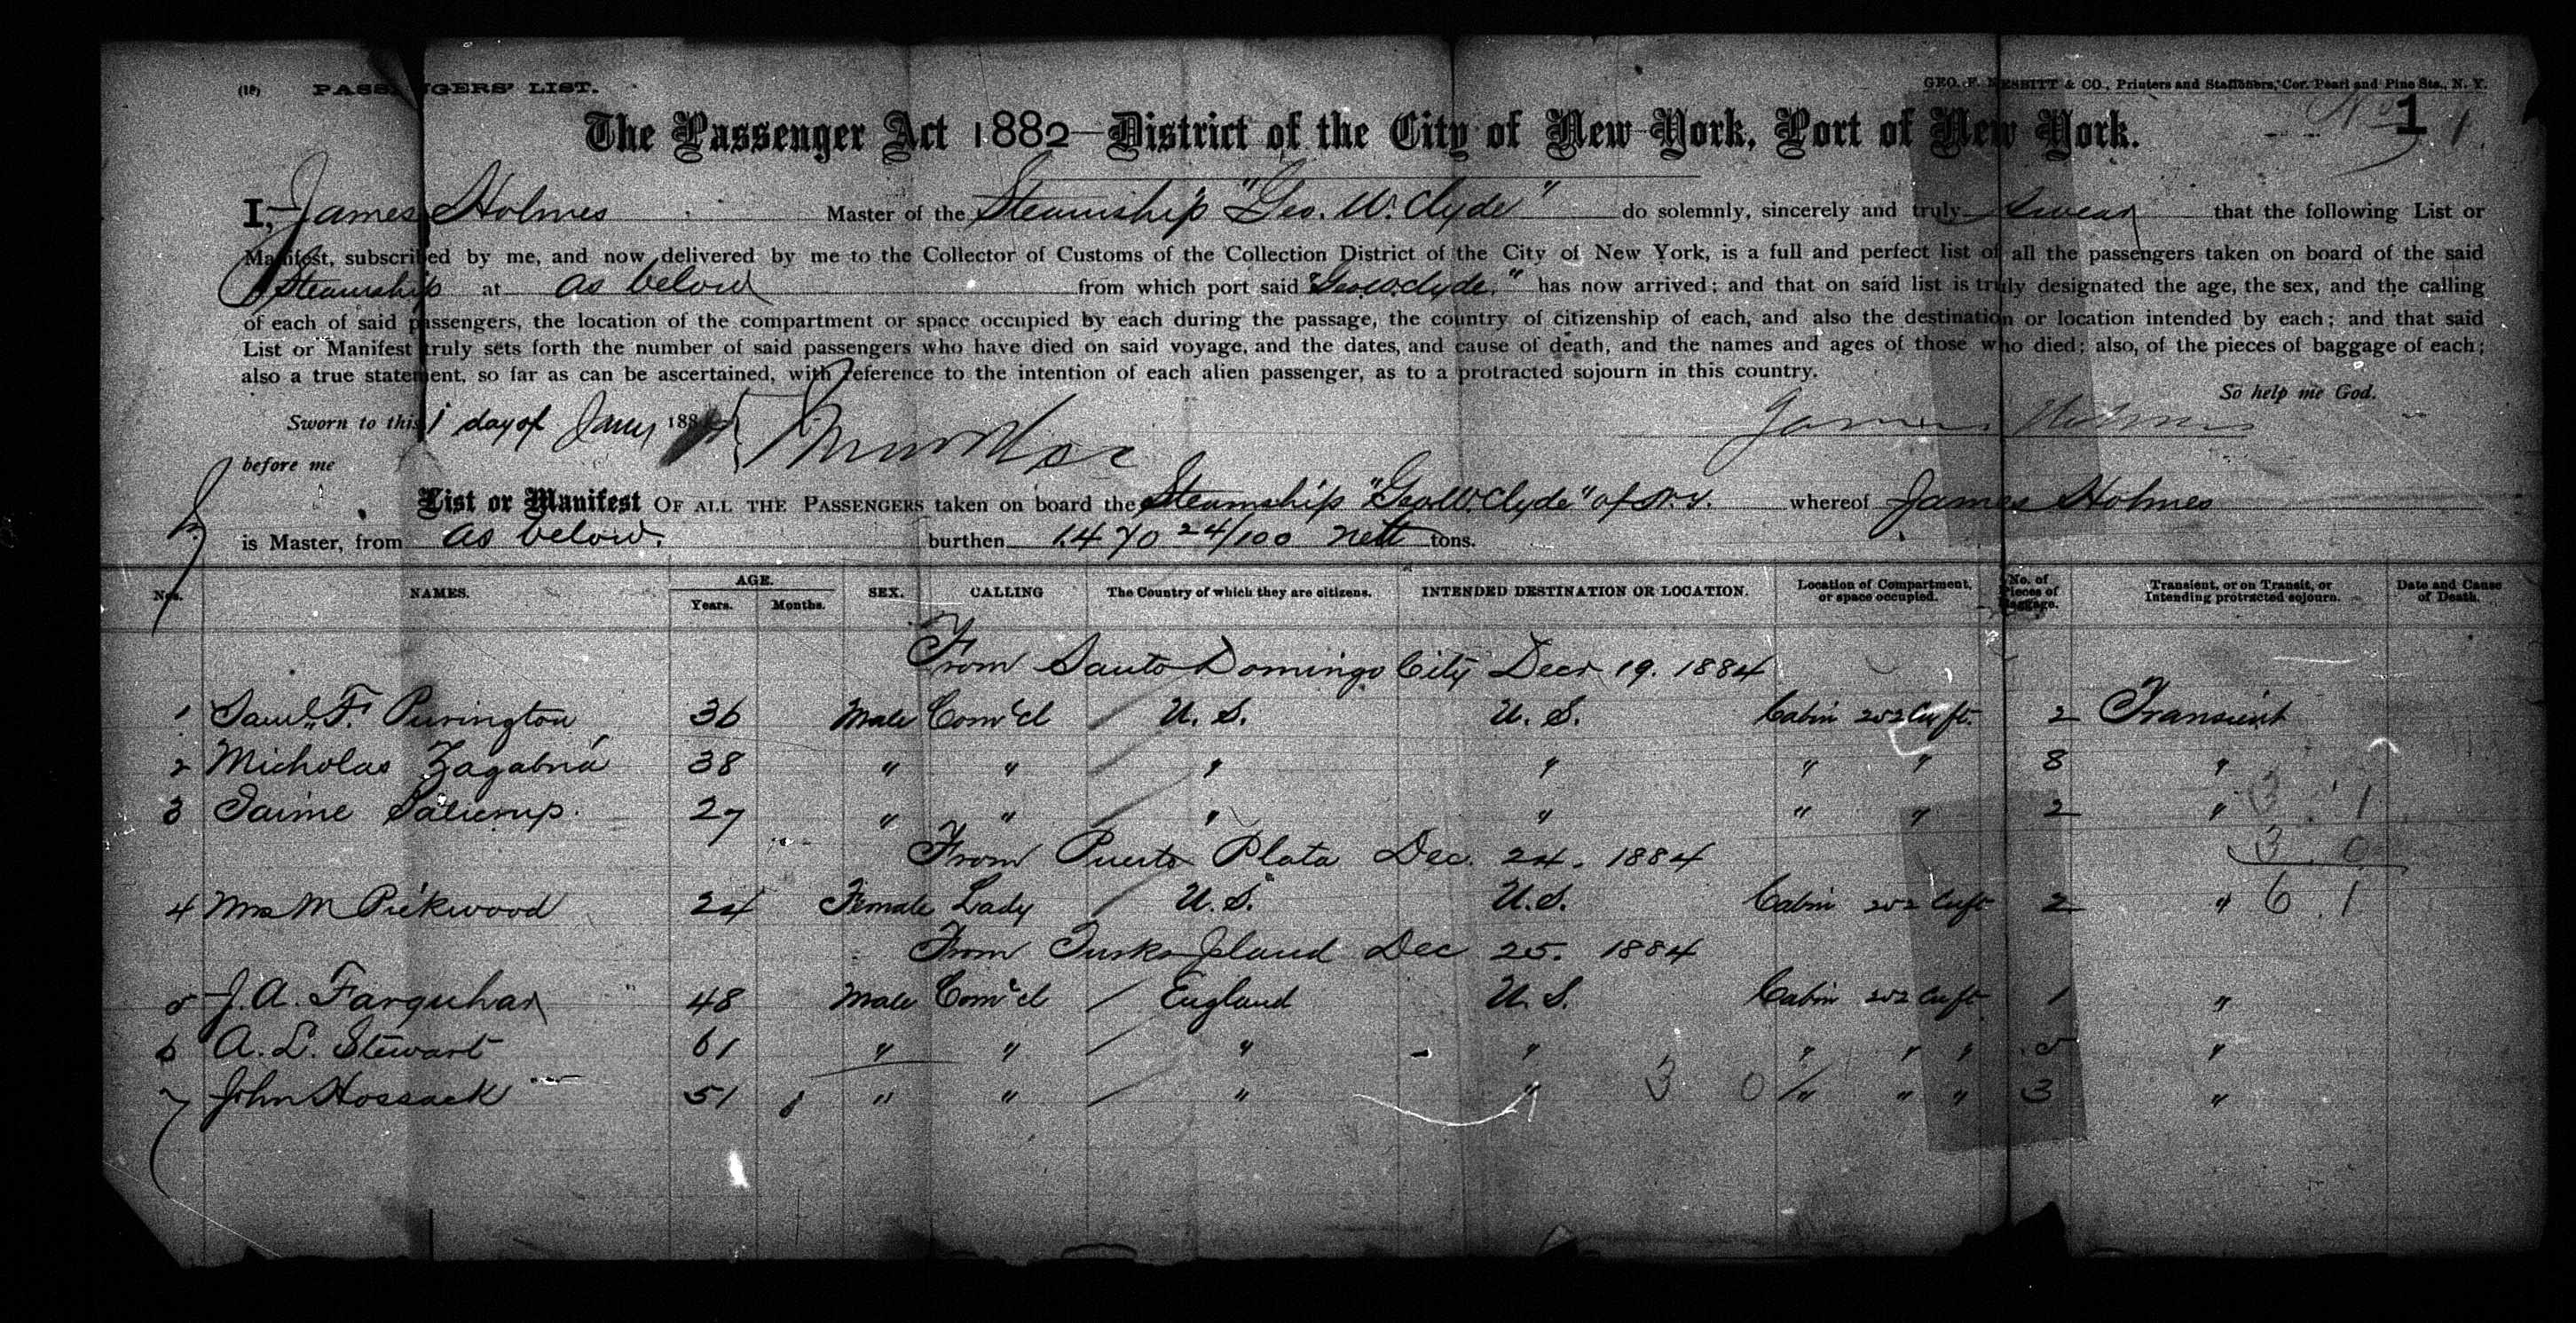 (18) PASSENGERS' LIST.
GEO. F. NESBITT & CO., Printers and Stationers, Cor. Pearl and Pine Sts., N. Y.
No 1 1
The Passenger Act 1882—District of the City of New York, Port of New York.
I, James Holmes Master of the Steamship "Geo. W. Clyde" do solemnly, sincerely and truly swear that the following List or
Manifest, subscribed by me, and now delivered by me to the Collector of Customs of the Collection District of the City of New York, is a full and perfect list of all the passengers taken on board of the said
Steamship at as below from which port said "Geo. W. Clyde." has now arrived; and that on said list is truly designated the age, the sex, and the calling
of each of said passengers, the location of the compartment or space occupied by each during the passage, the country of citizenship of each, and also the destination or location intended by each; and that said
List or Manifest truly sets forth the number of said passengers who have died on said voyage, and the dates, and cause of death, and the names and ages of those who died; also, of the pieces of baggage of each;
also a true statement, so far as can be ascertained, with reference to the intention of each alien passenger, as to a protracted sojourn in this country.
So help me God.
Sworn to this 1 day of Jany 188
James Holmes
before me
List or Manifest OF ALL THE PASSENGERS taken on board the Steamship "Geo. W. Clyde" of N.Y. whereof James Holmes
is Master, from as below. burthen 1470 24/100 nett tons.
Nos. NAMES. AGE. Years. Months. SEX. CALLING The Country of which they are citizens. INTENDED DESTINATION OR LOCATION. Location of Compartment, or space occupied. No. of Pieces of Baggage. Transient, or on Transit, or Intending protracted sojourn. Date and Cause of Death.
From Santo Domingo City Decr 19. 1884
1 Saml. F. Purington 36 Male Com'cl / U. S. U. S. Cabin 252 Cuft. 2 Transient
2 Micholas Zagabria 38 " " / " " " " 8 "
3 Jaime 27 " " / " " " " 2 " 3 1
From Puerto Plata Dec. 24. 1884 3 0
4 Mrs M Pickwood 24 Female Lady / U. S. U. S. Cabin 252 Cuft 2 " 6 1
From Turks Island Dec 25. 1884
5 J. A. Farquhar 48 Male Com'cl / England U. S. Cabin 252 Cuft 1 "
6 A. L. Stewart 61 " " / " " " " " 5 "
7 John Hossack 51 " " / " " 3 0 / " " " 3 "